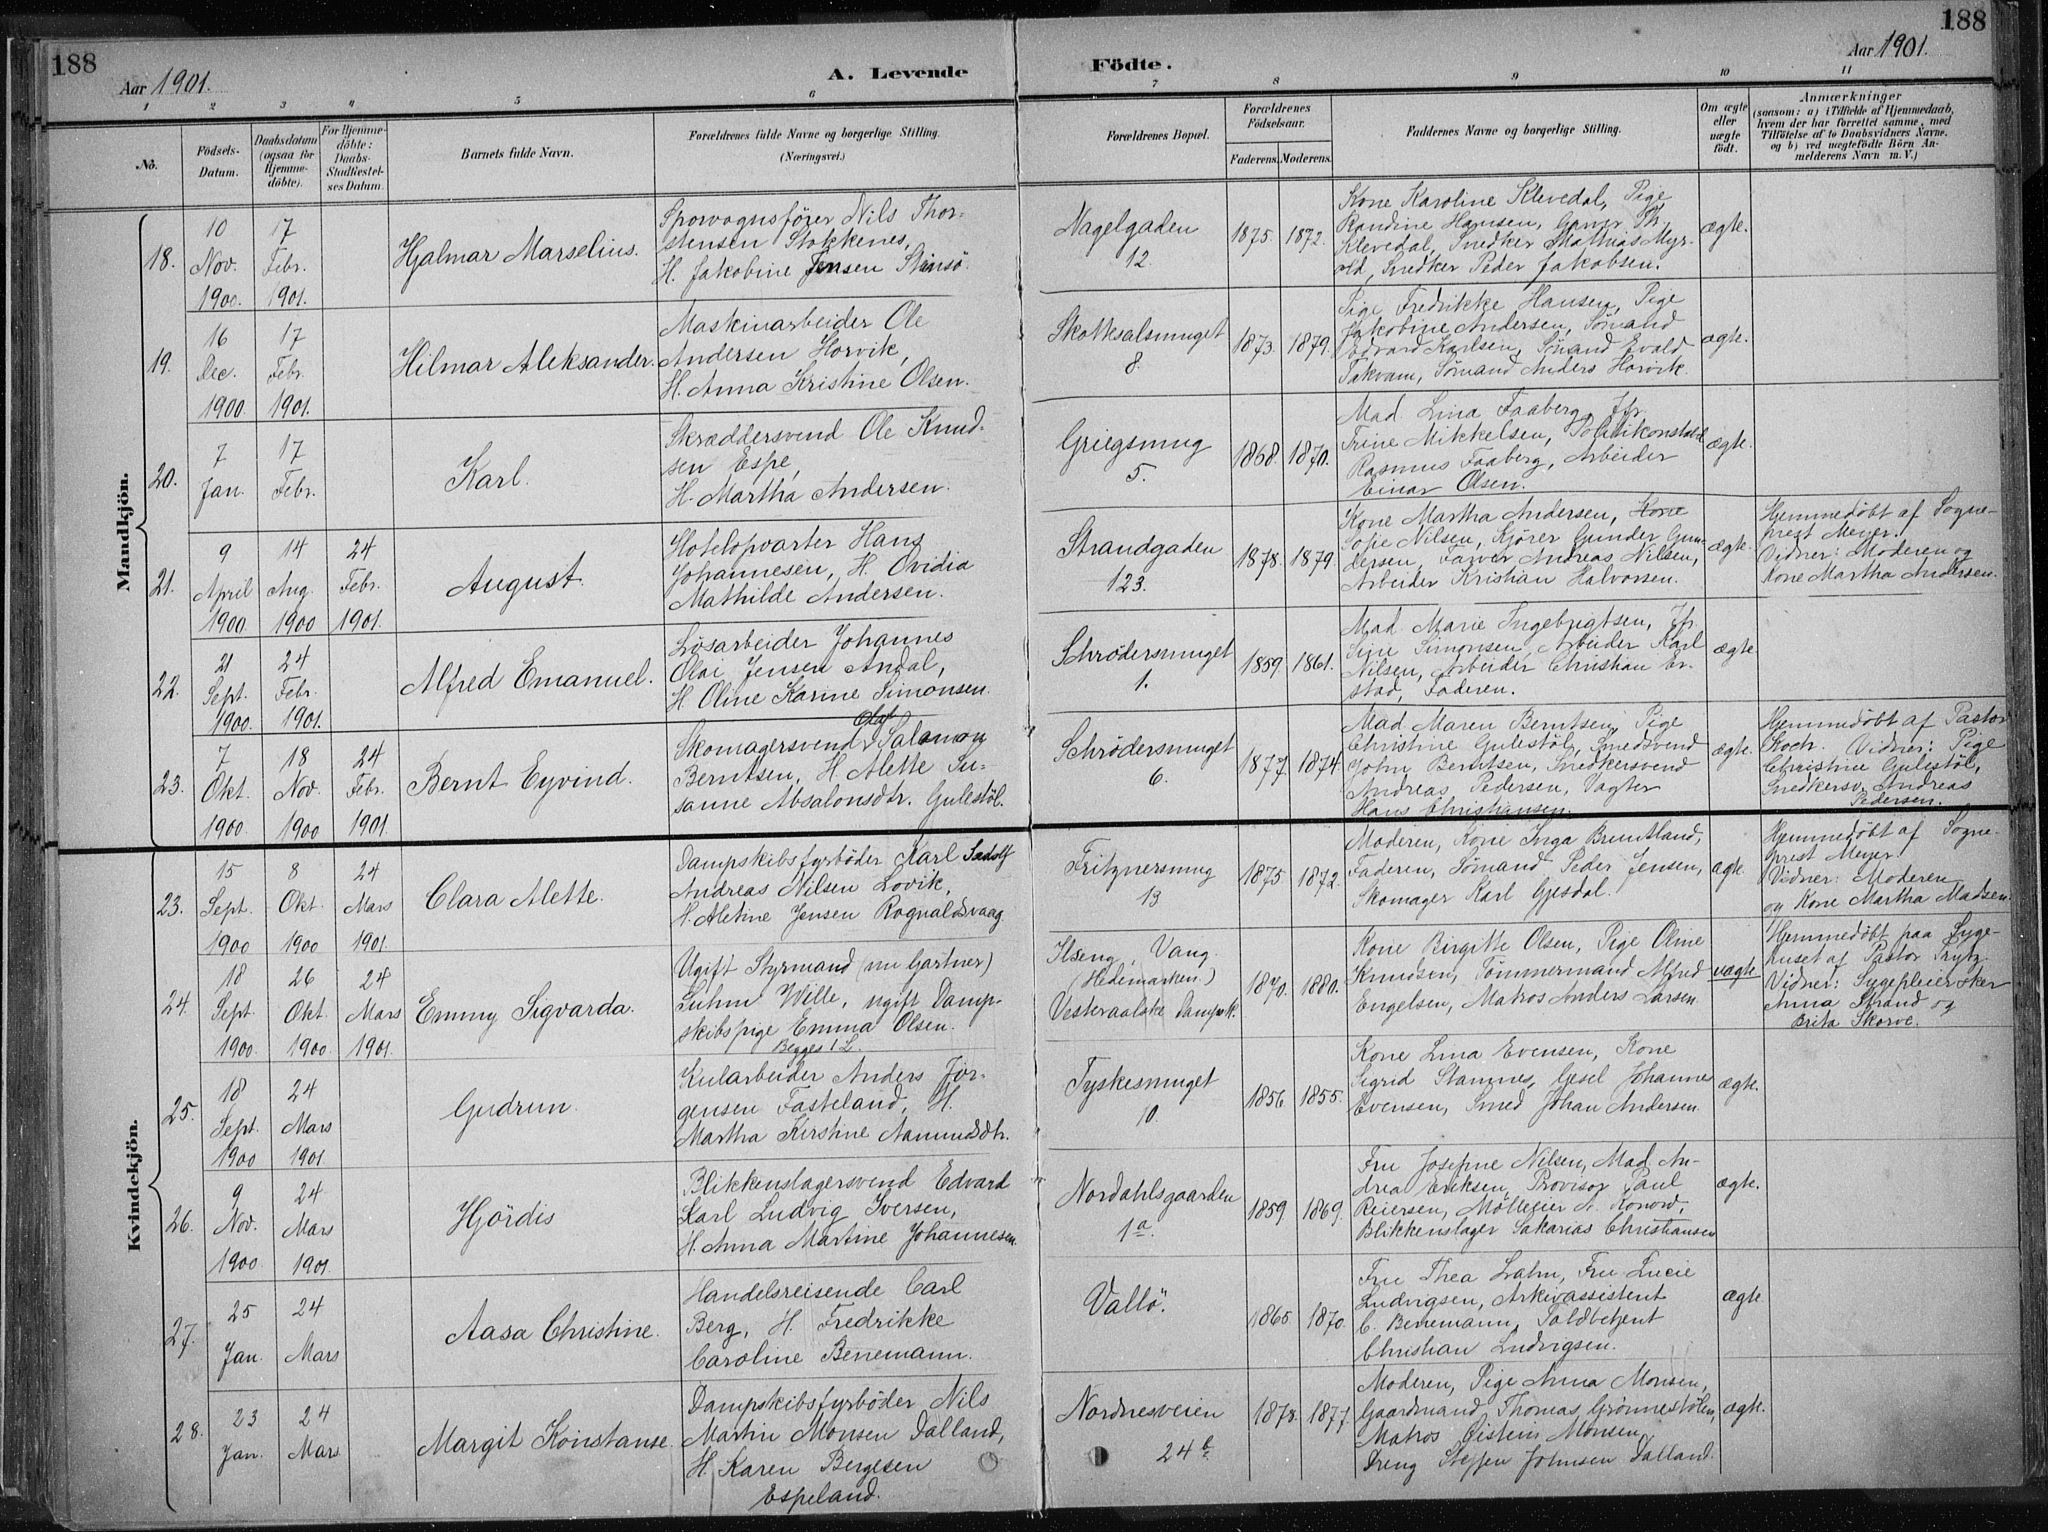 188
Aar 1901.
A. Levende Födte.
Aar 1901.
188
1 2 3 4 5 6 7 8 9 10 11
No.
Födsels-Datum.
Daabsdatum (ogsaa for Hjemmedöbte).
For Hjemmedöbte: Daabs-Stadfæstelses Datum.
Barnets fulde Navn.
Forældrenes fulde Navne og borgerlige Stilling.
(Næringsvei.)
Forældrenes Bopæl.
Forældrenes Födselsaar.
Faderens. Moderens.
Faddernes Navne og borgerlige Stilling.
Om ægte eller uægte født.
Anmærkninger
(saasom: a) i Tilfælde af Hjemmedaab,
hvem der har forrettet samme, med
Tilføielse af to Daabsvidners Navne.
og b) ved uægtefödte Börn An-
melderens Navn m. V.)
Mandkjön.
18.
10 Nov. 1900.
17 Febr. 1901.
Hjalmar Marselius.
Sporvognsfører Nils Thor-
stensen Stokkenes,
H. Jakobine Jensen Stensö.
Nagelgaden
12.
1875. 1872.
Kone Karoline Klevedal, Pige
Randine Hansen, Garver Th.
Klevedal, Snedker Mathias Myr-
old, Snedker Peder Jakobsen.
ægte.
19.
16 Dec. 1900
17 Febr. 1901.
Hilmar Aleksander.
Maskinarbeider Ole
Andersen Horvik,
H. Anna Kristine Olsen.
Skottesalsmuget
8.
1873. 1879.
Pige Fredrikke Hansen, Pige
Jakobine Andersen, Sømand
Edvard Karlsen, Sømand Evald
Takvam, Sømand Anders Horvik.
ægte.
20.
7 Jan.
17 Febr.
Karl.
Skræddersvend Ole Knud-
sen Espe,
H. Martha Andersen.
Griegsmug
5.
1868. 1870.
Mad. Lina Faaberg, Jfr.
Trine Mikkelsen, Politikonstabel
Rasmus Faaberg, Arbeider
Einar Olsen.
ægte.
21.
9 April 1900.
14 Aug. 1900
24 Febr. 1901.
August.
Hotelopvarter Hans
Johannesen, H. Ovidia
Mathilde Andersen.
Strandgaden
123.
1878. 1879.
Kone Martha Andersen, Kone
Sofie Nilsen, Kjører Gunder Gun-
dersen, Farver Andreas Nilsen,
Arbeider Kristian Halvorsen.
ægte.
Hjemmedøbt af Sogne-
prest Meyer.
Vidner: Moderen og
Kone Martha Andersen.
22.
21 Sept. 1900.
24 Febr. 1901.
Alfred Emanuel.
Løsarbeider Johannes
Olai Jensen Andal,
H. Oline Karine Simonsen.
Schrødersmuget
1.
1859. 1861.
Mad. Marie Ingebrigtsen, Jfr.
Sine Simonsen, Arbeider Karl
Nilsen, Arbeider Christian Er-
stad, Faderen.
ægte.
23.
7 Okt. 1900
18 Nov. 1900
24 Febr. 1901.
Bernt Eyvind.
Olaf
Skomagersvend Salomon
Berntsen, H. Alette Su-
sanne Absalonsdtr. Gulestöl.
Schrødersmuget
6.
1877. 1874.
Mad. Maren Berntsen, Pige
Christine Gulestöl, Smedsvend
John Berntsen, Snedkersvend
Andreas Pedersen, Vagter
Hans Christiansen.
ægte.
Hjemmedøbt af Pastor
Koch. Vidner: Pige
Christine Gulestöl,
Snedkersv. Andreas
Pedersen.
Kvindekjön.
23.
15 Sept. 1900
8 Okt. 1900
24 Mars 1901.
Clara Alette.
Dampskibsfyrbøder Karl
Andreas Nilsen Lovik,
H. Aletine Jensen Rognaldsvaag.
Fritznersmug
13
1875. 1872.
Moderen, Kone Inga Bruntland,
Faderen, Sømand Peder Jensen,
Skomager Karl Gjesdal.
ægte.
Hjemmedøbt af Sogne-
prest Meyer.
Vidner: Moderen
og Kone Martha Madsen.
24.
18 Sept. 1900
26 Okt. 1900
24 Mars 1901.
Emmy Sigvarda.
Ugift Styrmand (nu Gartner)
Suhm Wille, ugift Damp-
skibspige Emma Olsen.
Begges 1 L.
Ilseng, Vang.
(Hedemarken.)
Vesteraalske Dampsk.
1870. 1880.
Kone Birgitte Olsen, Pige Oline
Knudsen, Tømmermand Alfred
Engelsen, Matros Anders Larsen.
uægte.
Hjemmedøbt paa Syge-
huset af Pastor Frytz.
Vidner: Sygepleiersker
Anna Strand og
Brita Skorve.
25.
18 Sept. 1900
24 Mars 1901.
Gudrun.
Kularbeider Anders Jör-
gensen Fasteland, H.
Martha Kirstine Aamundsdtr.
Tyskesmuget
10.
1856. 1855.
Kone Lina Evensen, Kone
Sigrid Stamnes, Gesel Johannes
Evensen, Smed Johan Andersen.
ægte.
26.
9 Nov. 1900
24 Mars 1901.
Hjördis
Blikkenslagersvend Edvard
Karl Ludvig Iversen,
H. Anna Martine Johannesen.
Nordahlsgaarden
1a.
1859. 1869.
Fru Josefine Nilsen, Mad. An-
drea Eriksen, Provisor Paul
Reiersen, Møller Konow,
Blikkenslager Sakarias Christiansen
ægte.
27.
25 Jan.
24 Mars
Aasa Christine.
Handelsreisende Carl
Berg, H. Fredrikke
Caroline Benemann.
Vallö.
1865 1870.
Fru Thea Lahn, Fru Lucie
Ludvigsen, Arkivassistent
C. Benemann, Toldbetjent
Christian Ludvigsen.
ægte.
28.
23 Jan.
24 Mars
Margit Konstanse.
Dampskibsfyrbøder Nils
Martin Monsen Dalland,
H. Karen Bergesen
Espeland.
Nordnesveien
24b.
1878. 1877.
Moderen, Pige Anna Monsen,
Gaardmand Thomas Grønnestølen,
Matros Øistein Monsen,
Dreng Steffen Johnsen Dalland.
ægte.